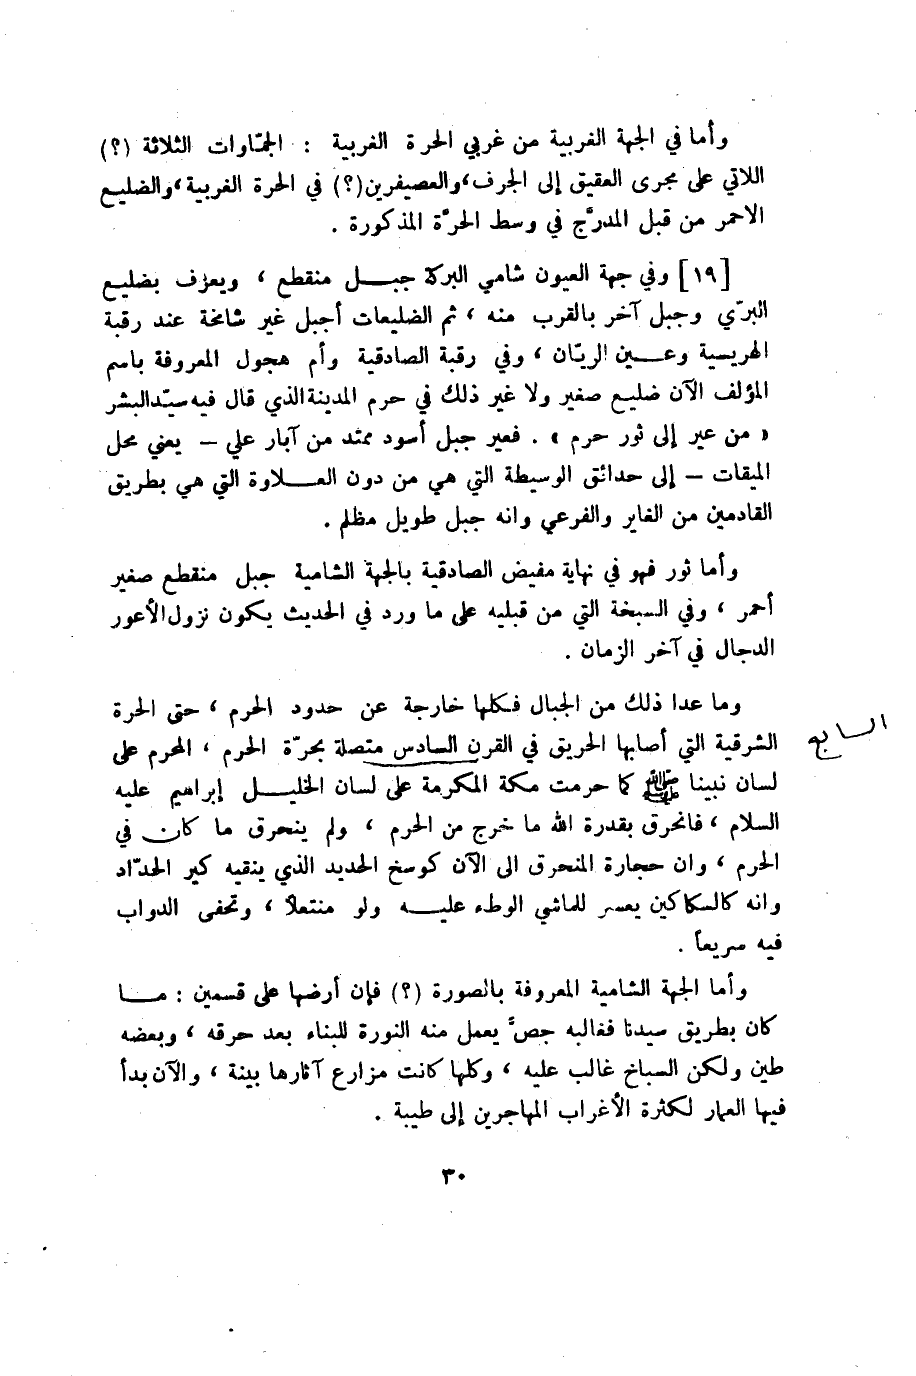 وأما في الجهة الغربية من غربي الحرة الغربية : الجمّاوات الثلاثة (؟)
اللاتي على مجرى العقيق إلى الجرف، والعصيفرين(؟) في الحرة الغربية، والضليع
الاحمر من قبل المدرَّج في وسط الحرَّة المذكورة .
[١٩] وفي جهة العيون شامي البركة جبـــل منقطع ، ويعرف بضليع
البرّي وجبل آخر بالقرب منه ، ثم الضليعات أجبل غير شامخة عند رقبة
الهريسية وعـــين الريّان ، وفي رقبة الصادقية وأم هجول المعروفة باسم
المؤلف الآن ضليع صغير ولا غير ذلك في حرم المدينة الذي قال فيه سيّد البشر
« من عير إلى ثور حرم » . فعير جبل أسود ممتد من آبار علي – يعني محل
الميقات – إلى حدائق الوسيطة التي هي من دون العـــلاوة التي هي بطريق
القادمين من الغاير والفرعي وانه جبل طويل مظلم .
وأما ثور فهو في نهاية مفيض الصادقية بالجهة الشامية جبل منقطع صغير
أحمر ، وفي السبخة التي من قبليه على ما ورد في الحديث يكون نزول الأعور
الدجال في آخر الزمان .
وما عدا ذلك من الجبال فكلها خارجة عن حدود الحرم ، حتى الحرة
الشرقية التي أصابها الحريق في القرن السادس متصلة بحرّة الحرم ، المحرم على
السابع
لسان نبينا ﷺ كما حرمت مكة المكرمة على لسان الخليـــل إبراهيم عليه
السلام ، فانحرق بقدرة الله ما خرج من الحرم ، ولم ينحرق ما كان في
الحرم ، وان حجارة المنحرق الى الآن كوسخ الحديد الذي ينقيه كير الحدّاد
وانه كالسكاكين يعسر للماشي الوطء عليـــه ولو منتعلاً ، وتحفى الدواب
فيه سريعاً .
وأما الجهة الشامية المعروفة بالصورة (؟) فإن أرضها على قسمين : مـــا
كان بطريق سيدنا فغالبه جصٌّ يعمل منه النورة للبناء بعد حرقه ، وبعضه
طين ولكن السباخ غالب عليه ، وكلها كانت مزارع آثارها بينة ، والآن بدأ
فيها العمار لكثرة الأغراب المهاجرين إلى طيبة .
٣٠